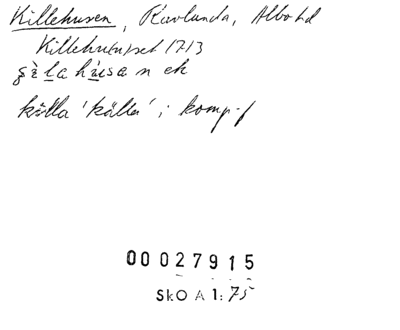 Killehusen, Ravlunda, Albo hd
Killehu(u)set 1713
källa 'källa'; komp.f
00027915
SkO A 1:75